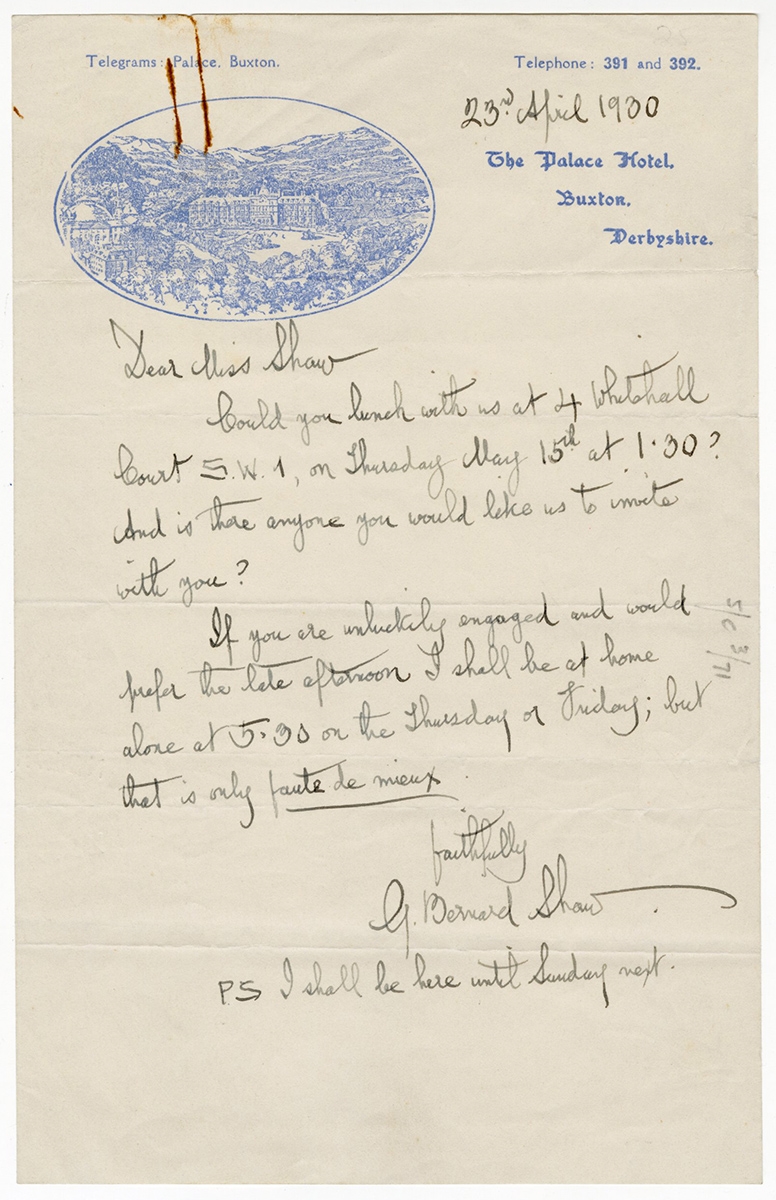 Telegrams: Palace, Buxton.
Telephone: 391 and 392.
23rd April 1930
The Palace Hotel,
Buxton,
Derbyshire.
Dear Miss Shaw
Could you lunch with us at 4 Whitehall
Court S.W.1, on Thursday May 15th at 1·30?
And is there anyone you would like us to invite
with you?
If you are unluckily engaged and would
prefer the late afternoon I shall be at home
alone at 5·30 on the Thursday or Friday; but
that is only faute de mieux.
faithfully
G. Bernard Shaw
PS I shall be here until Sunday next.